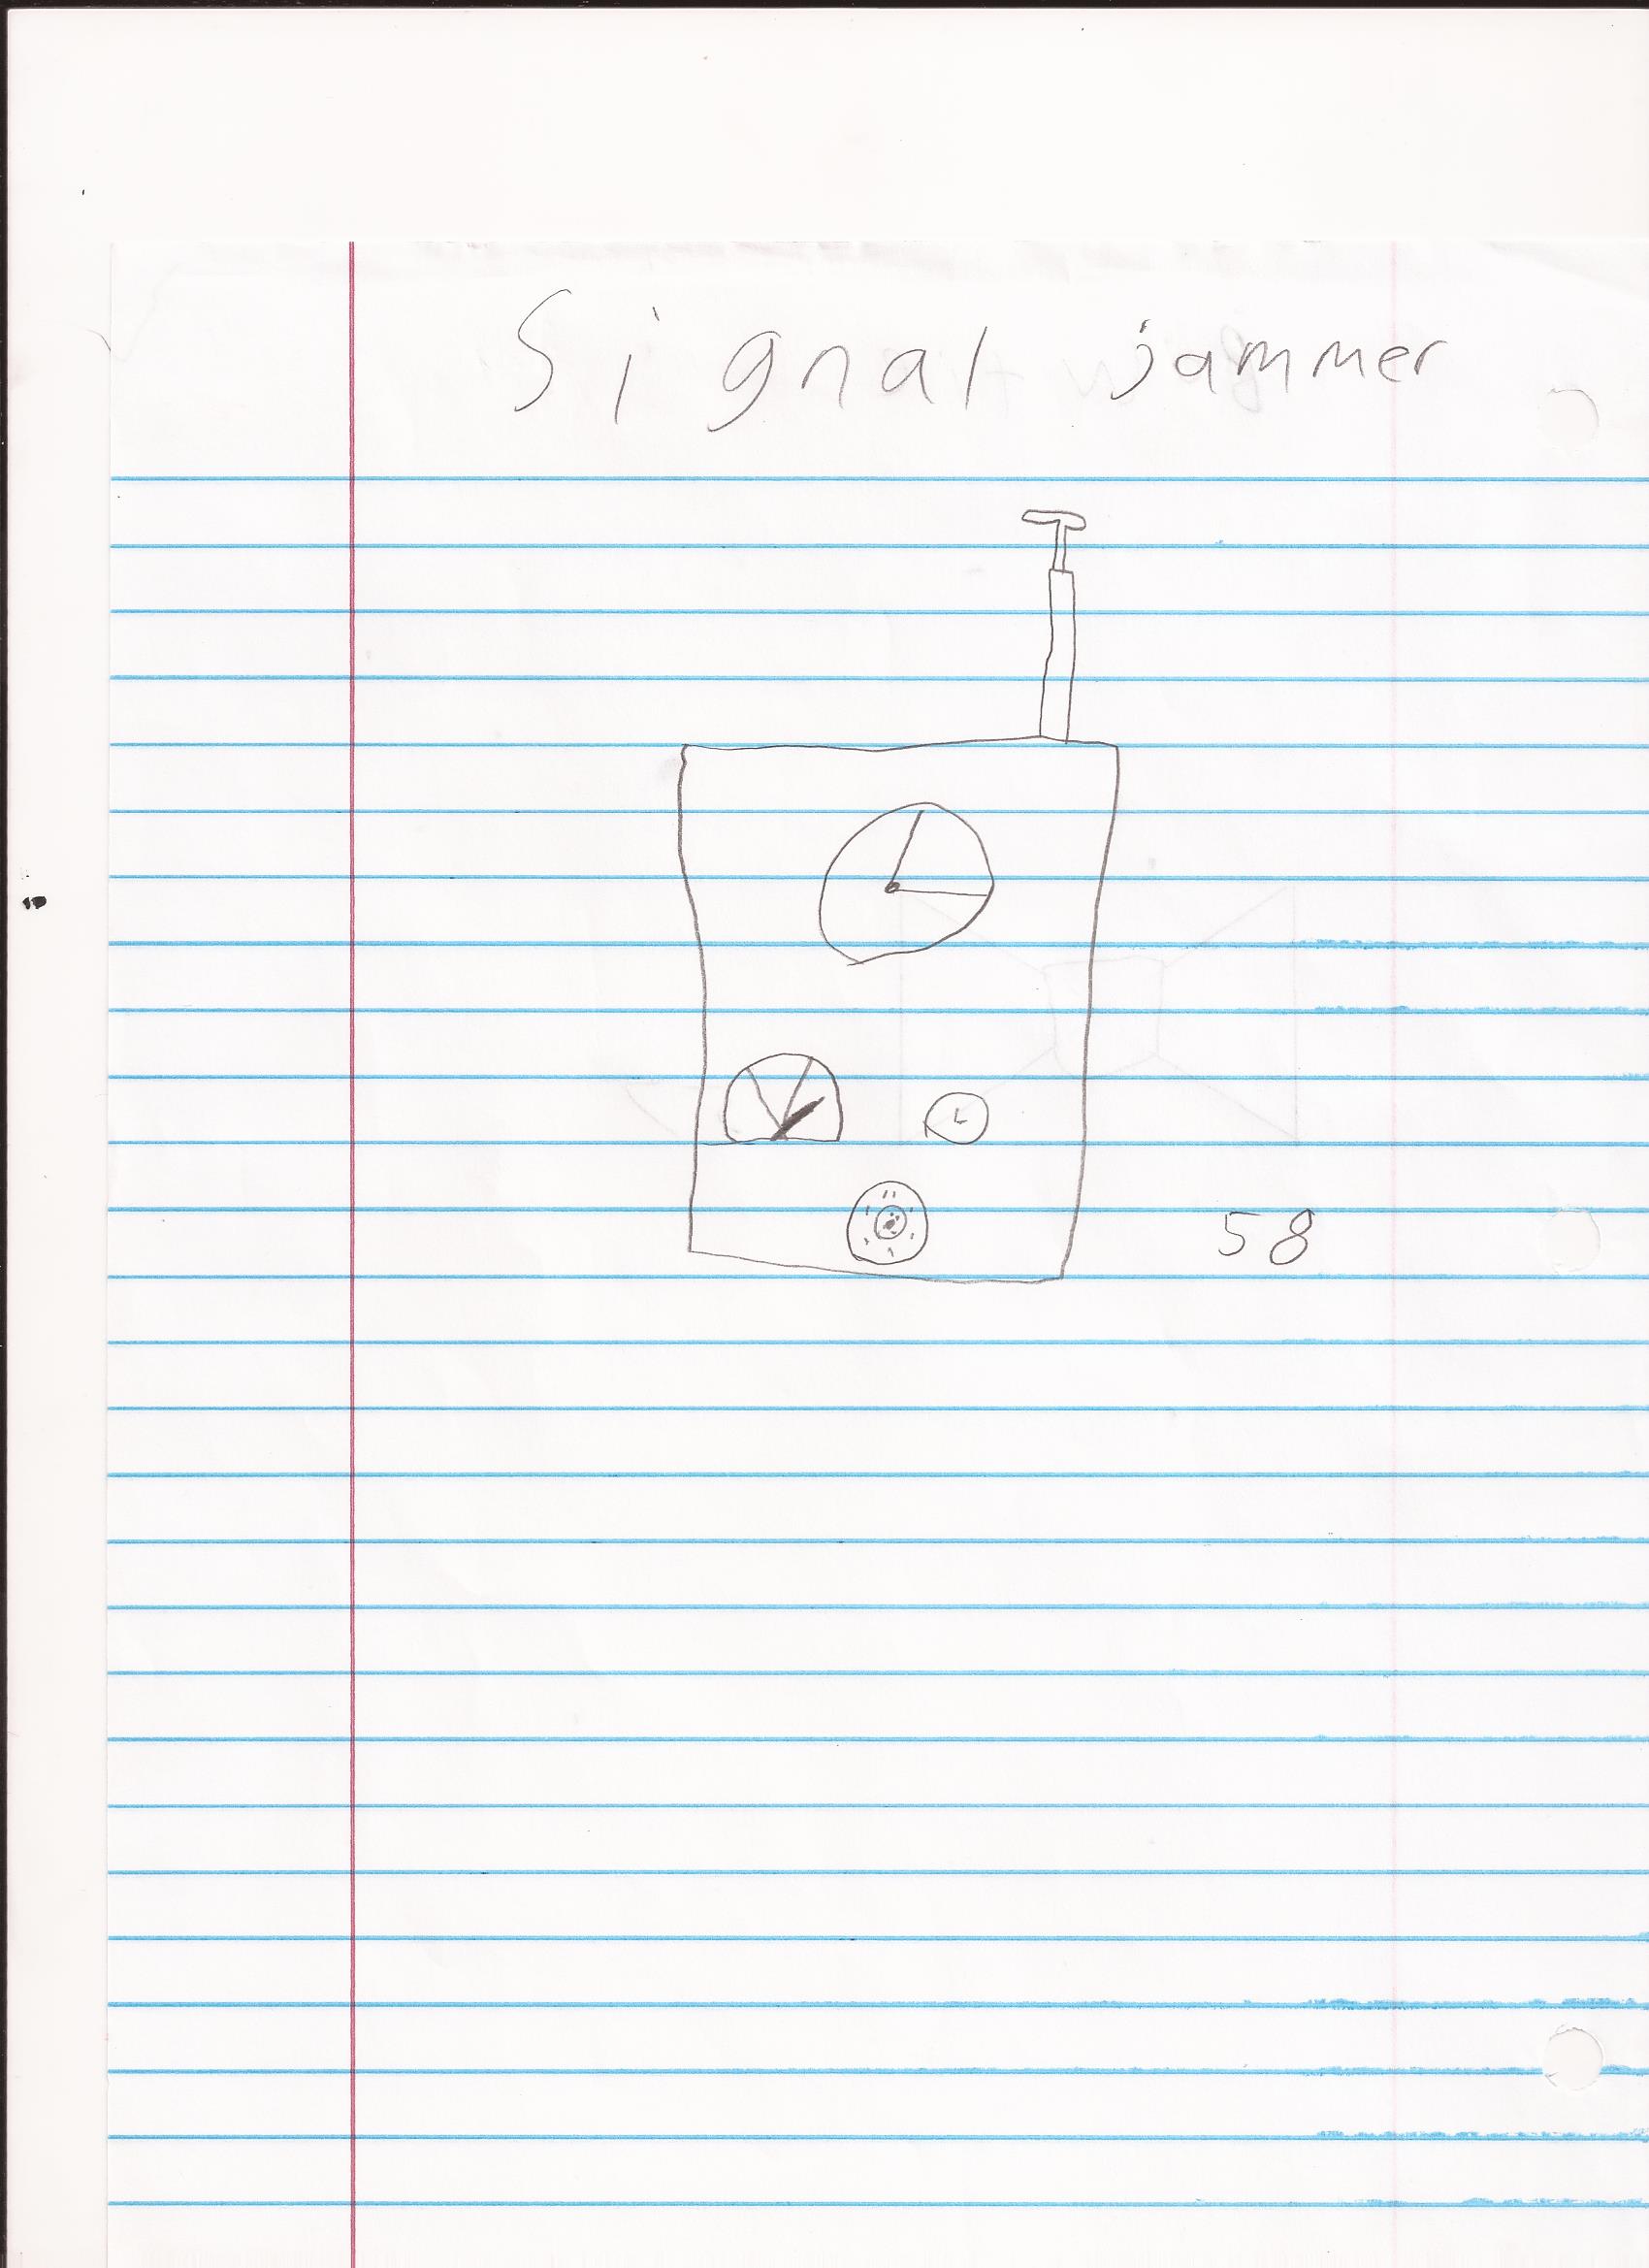 Signal jammer
58